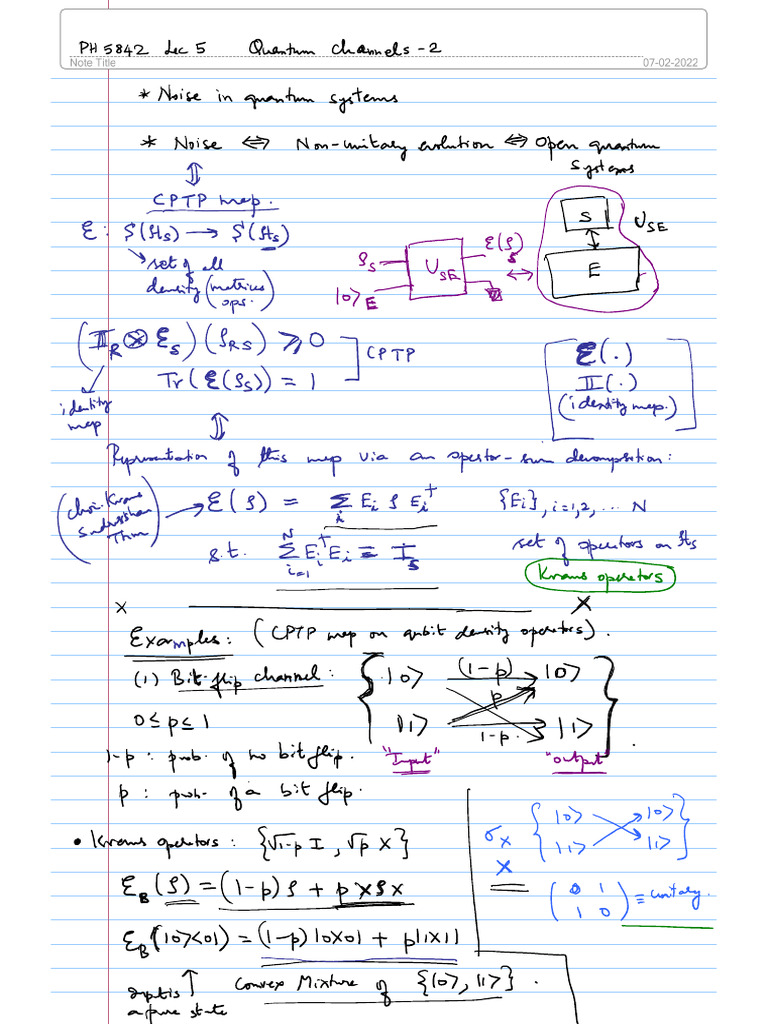 PH5842 Lec 5 Quantum Channels - 2
Note Title 07-02-2022
* Noise in quantum systems
* Noise ⇔ Non-unitary evolution ⇔ Open quantum
systems
⇕
CPTP map.
ℰ: S(ℋs) → S(ℋs)
set of all
density (matrices
ops.)
ρs
|0⟩E
USE
ℰ(ρs)
⇔
S
E
USE
(𝕀R ⊗ ℰs)(ρRS) ⩾ 0
Tr(ℰ(ρs)) = 1
CPTP
identity
map
ℰ(.)
𝕀(.)
(identity map.)
⇕
Representation of this map via an operator-sum decomposition:
(Choi-Kraus
Sudarshan
Thm)
ℰ(ρ) = Σi Ei ρ Ei†
{Ei}, i=1,2,... N
s.t. Σ(i=1 to N) Ei† Ei = Is
set of operators on ℋs
Kraus operators
x x
Examples: (CPTP map on qubit density operators).
(1) Bit-flip channel:
|0⟩ (1-p) |0⟩
p
0 ≤ p ≤ 1
|1⟩ 1-p |1⟩
1-p : prob. of no bit flip.
"Input" "output"
p : prob. of a bit flip.
• Kraus operators : {√1-p I, √p X}
ℰB(ρ) = (1-p)ρ + p XρX
ℰB(|0⟩⟨0|) = (1-p)|0⟩⟨0| + p|1⟩⟨1|
input is
a pure state
Convex Mixture of {|0⟩, |1⟩}.
σx
X
{|0⟩ |0⟩
|1⟩ |1⟩}
(0 1
1 0) ≡ unitary.